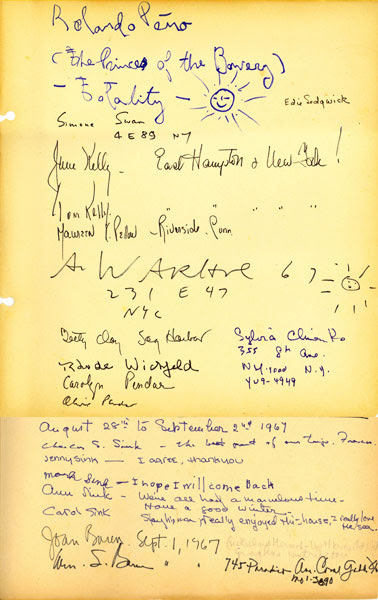 Rolando Peño
(The Prince of the Bowery)
- Totality -
Edie Sedgwick
Simone Swan
4 E 89 NY
June Kelly - East Hampton & New York!
Tom Kelly " " " "
Maureen Riverside. Conn
A. WARHOL 67
231 E 47
NYC
Betty Clay Sag Harbor
Sylvia
355 8th Ave.
N.Y. 1000 N.Y.
YU9-4949
Carolyn Pendar
August 28th to September 2nd 1967
S. Sink - The best part of our
Jenny Sink - I agree, thank you
Mark Sink - I hope I will come Back
Ann Sink - We've all had a marvelous time -
Have a good winter -
Carol Sink - really enjoyed the house, I really love
Joan Baren Sept. 1, 1967
Wm. S. Baren " " "
745 Av. Coral Gables